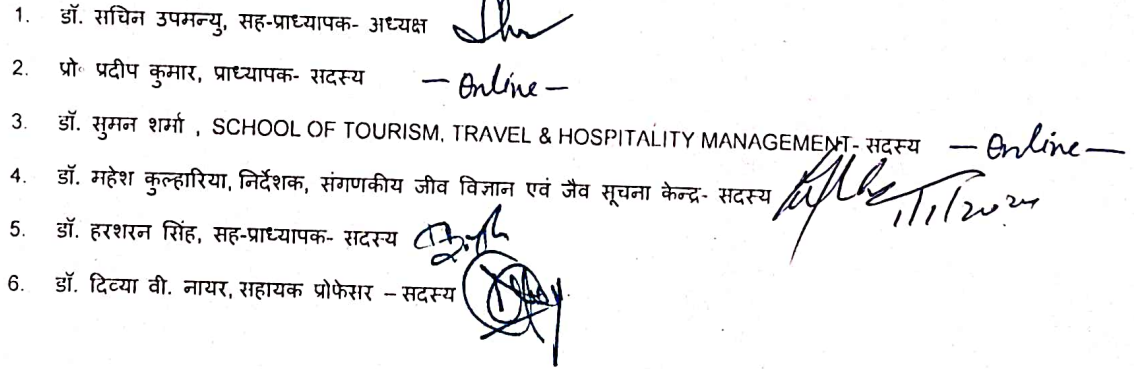 1. डॉ. सचिन उपमन्यु, सह-प्राध्यापक- अध्यक्ष
2. प्रो॰ प्रदीप कुमार, प्राध्यापक- सदस्य – Online –
3. डॉ. सुमन शर्मा , SCHOOL OF TOURISM, TRAVEL & HOSPITALITY MANAGEMENT- सदस्य – Online –
4. डॉ. महेश कुल्हारिया, निर्देशक, संगणकीय जीव विज्ञान एवं जैव सूचना केन्द्र- सदस्य
5. डॉ. हरशरन सिंह, सह-प्राध्यापक- सदस्य
6. डॉ. दिव्या वी. नायर, सहायक प्रोफेसर – सदस्य